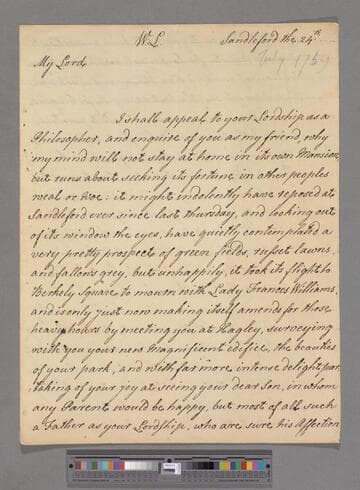 W. L. Sandleford the 24th
July 1759
My Lord
I shall appeal to your Lordship as a
Philosopher, and enquire of you as my friend, why
my mind will not stay at home in its own Mansion
but runs about seeking its fortune in other peoples
weal or woe: it might indolently have reposed at
Sandleford ever since last thursday, and looking out
of its window the eyes, have quietly contemplated a
very pretty prospect of green fields, russet lawns
and fallows grey, but unhappily, it took its flight to
Berkely Square to mourn with Lady Frances Williams,
and is only just now making itself amends for those
heavy hours by meeting you at Hagley, surveying
with you your new magnificent edifice, the beauties
of your park, and with far more intense delight par
taking of your joy at seeing your dear Son, in whom
any Parent would be happy, but most of all such
a Father as your Lordship, who are sure his Affection